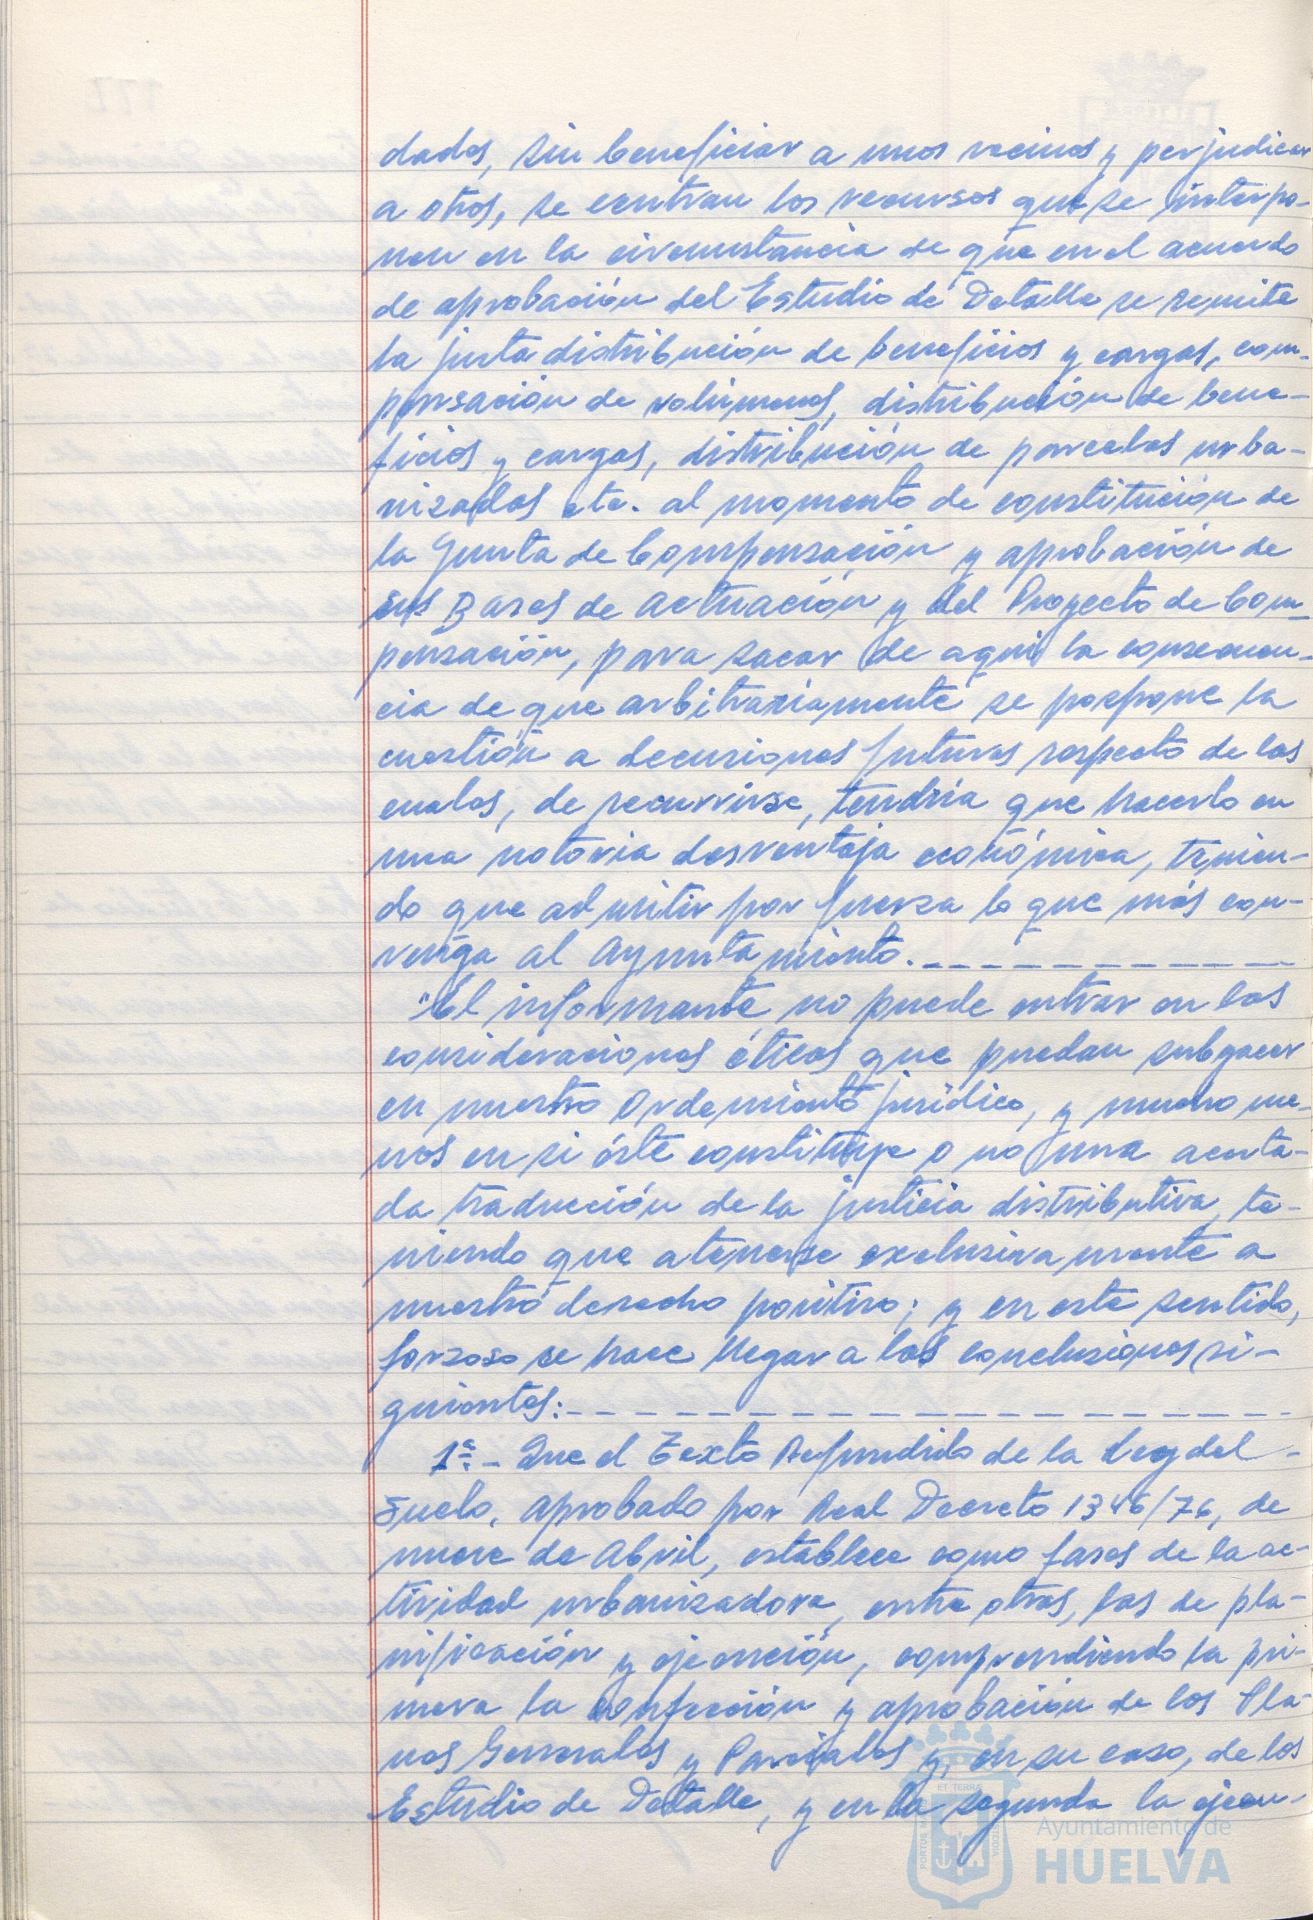 dados, sin beneficiar a unos vecinos y perjudicar
a otros, se centran los recursos que se interpo-
nen en la circunstancia de que en el acuerdo
de aprobación del Estudio de Detalle se remite
la justa distribución de beneficios y cargas, com-
pensación de volúmenes, distribución de bene-
ficios y cargas, distribución de parcelas urba-
nizadas etc. al momento de constitución de
la Junta de Compensación y aprobación de
sus Bases de Actuación y del Proyecto de Com-
pensación, para sacar de aqui la consecuen-
cia de que arbitrariamente se pospone la
cuestión a decisiones futuras respecto de las
cuales, de recurrirse, tendría que hacerlo en
una notoria desventaja económica, tenien-
do que admitir por fuerza lo que más con-
venga al Ayuntamiento. _ _ _ _ _ _ _ _ _ _
"El informante no puede entrar en las
consideraciones éticas que puedan subyacer
en nuestro Ordemiento jurídico, y mucho me-
nos en si éste constituye o no una acerta-
da traducción de la justicia distributiva, te-
niendo que atenerse exclusivamente a
nuestro derecho positivo; y en este sentido,
forzoso se hace llegar a las conclusiones si-
guientes: _ _ _ _ _ _ _ _ _ _ _ _ _ _ _ _ _
1ª.- Que el Texto Refundido de la Ley del -
Suelo, aprobado por Real Decreto 1346/76, de
nueve de Abril, establece como fases de la ac-
tividad urbanizadora, entre otras, las de pla-
nificación y ejecución, comprendiendo la pri-
mera la confección y aprobación de los Pla-
nes Generales y Parciales y, en su caso, de los
Estudio de Detalle, y en la segunda la ejecu-
Ayuntamiento de
HUELVA